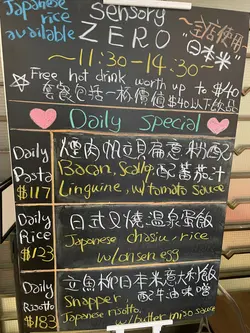 Japanese rice available
Sensory
ZERO
~全店使用
日本米~
~11:30-14:30~
Free hot drink worth up to $40
套餐包括一杯價值$40以下飲品
Daily Special
Daily
Pasta
$117
煙肉帆立貝扁意粉配
Bacon, Scallop, 配蕃茄汁
Linguine, w/tomato sauce
Daily
Rice
$123
日式叉燒溫泉蛋飯
Japanese chasiu, rice
w/onsen egg
Daily
Risotto
$183
立魚柳日本米意大利飯
Snapper, 配牛油味噌
Japanese risotto, w/butter miso sauce